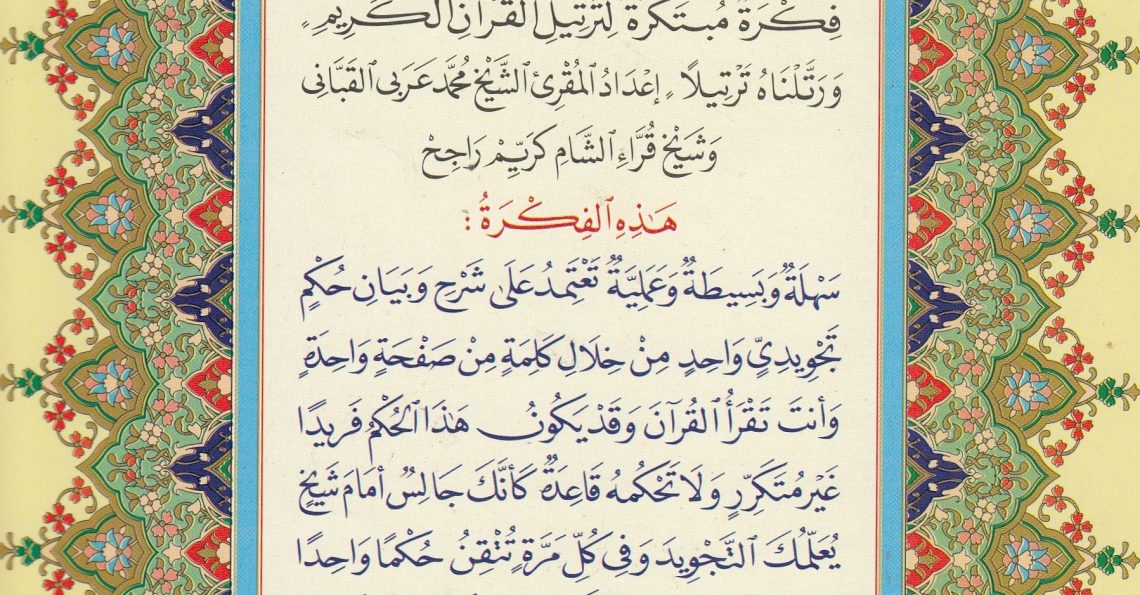 فِكْرَةٌ مُبْتَكَرَةٌ لِتَرْتِيلِ ٱلْقُرْآنِ ٱلْكَرِيمِ
وَرَتَّلْنَاهُ تَرْتِيلًا إِعْدَادُ ٱلْمُقْرِئِ ٱلشَّيْخِ مُحَمَّد عَرَبِي ٱلْقَبَّانِي
وَشَيْخِ قُرَّاءِ ٱلشَّامِ كَرَيِّمْ رَاجِحْ
هَٰذِهِ ٱلْفِكْرَةُ :
سَهْلَةٌ وَبَسِيطَةٌ وَعَمَلِيَّةٌ تَعْتَمِدُ عَلَى شَرْحِ وَبَيَانِ حُكْمٍ
تَجْوِيدِيٍّ وَاحِدٍ مِنْ خِلَالِ كَلِمَةٍ مِنْ صَفْحَةٍ وَاحِدَةٍ
وَأَنتَ تَقْرَأُ ٱلْقُرْآنَ وَقَدْ يَكُونُ هَٰذَا ٱلْحُكْمُ فَرِيدًا
غَيْرَ مُتَكَرِّرٍ وَلَا تَحْكُمهُ قَاعِدَةٌ كَأَنَّكَ جَالِسٌ أَمَامَ شَيْخٍ
يُعَلِّمُكَ ٱلتَّجْوِيدَ وَفِي كُلِّ مَرَّةٍ تُتْقِنُ حُكْمًا وَاحِدًا